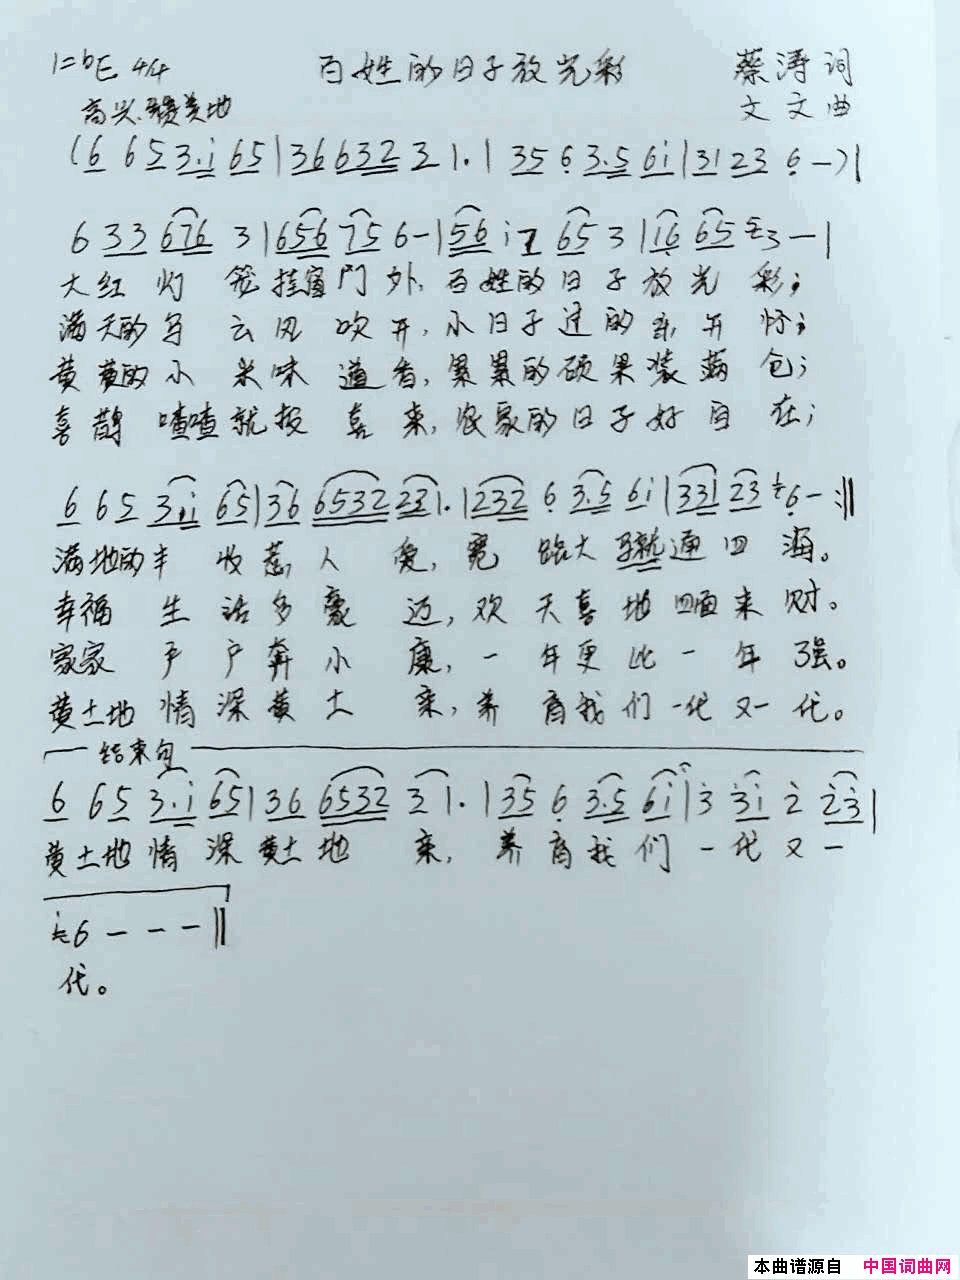 1=bE 4/4 百姓的日子放光彩 蔡涛词
高兴、赞美地 文文曲
(6 6 5 3.i 6 5 | 3 6 6 3 2 2 1. | 3 5 6 3.5 6 i | 3 1 2 3 6 —) |
6 3 3 6 7 6 3 | 6 5 6 7 5 6 — | 5 6 i 7 6 5 3 | i 6 6 5 3 — |
大红灯笼挂窗门外,百姓的日子放光彩;
满天的乌云风吹开,小日子过的乐开怀;
黄黄的小米味道香,累累的硕果装满包;
喜鹊喳喳就报喜来,农家的日子好自在;
6 6 5 3.i 6 5 | 3 6 6 5 3 2 2 3 1. | 2 3 2 6 3.5 6 i | 3 3 1 2 3 6 — :||
满地的丰收惹人爱,宽路大通四海。
幸福生活多豪迈,欢天喜地晒来财。
家家户户奔小康,一年更比一年强。
黄土地情深黄土亲,养育我们一代又一代。
结束句
6 6 5 3.i 6 5 | 3 6 6 5 3 2 3 1. | 3 5 6 3.5 6 i | 3 3 i 2 2 3 |
黄土地情深黄土地亲,养育我们一代又一
6 — — — ||
代。
本曲谱源自 中国词曲网